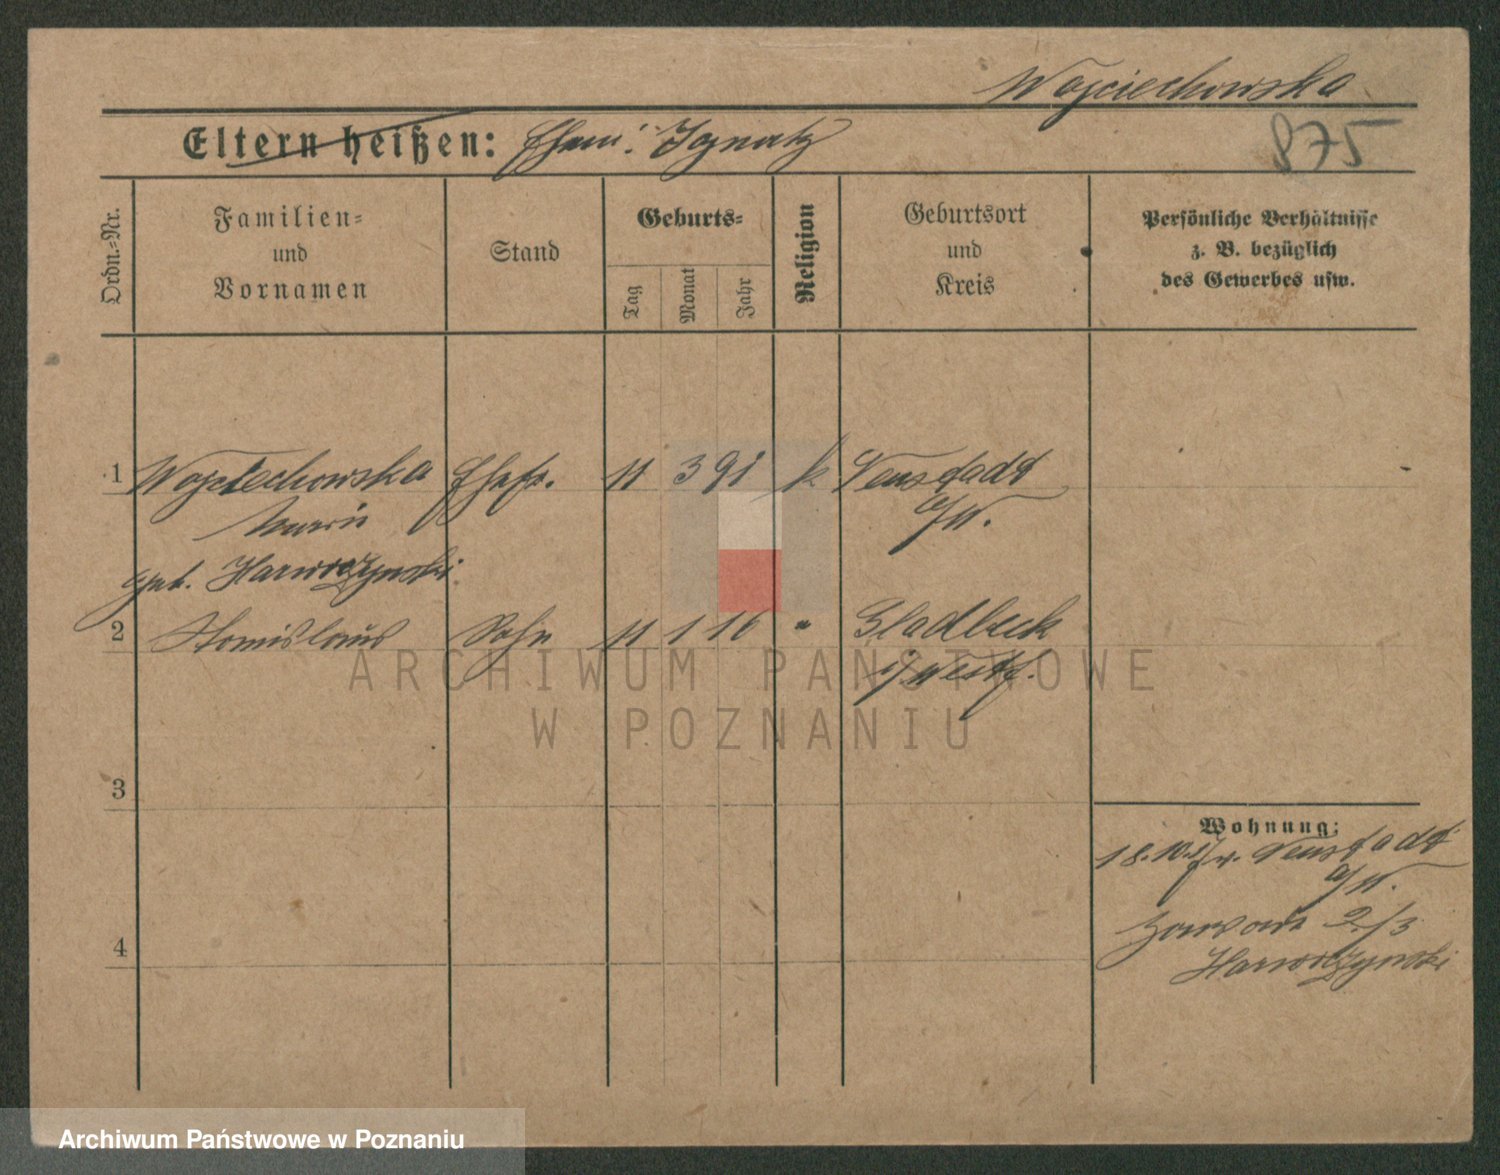 Wojciechowska
Eltern heißen: Ehem: Ignatz
875
Ordn.=Nr.
Familien=
und
Vornamen
Stand
Geburts=
Tag
Monat
Jahr
Religion
Geburtsort
und
Kreis
Persönliche Verhältnisse
z. B. bezüglich
des Gewerbes usw.
1 Wojciechowska Ehefr. 11 3 91 k Neustadt
Marie a/W.
geb. Harwozynski
2 Stanislaus Sohn 11 1 16 " Gladbeck
i/Westf.
ARCHIWUM PAŃSTWOWE
W POZNANIU
3
Wohnung:
18.10.17 v. Neustadt
a/W.
2/3
Harwozynski
4
Archiwum Państwowe w Poznaniu